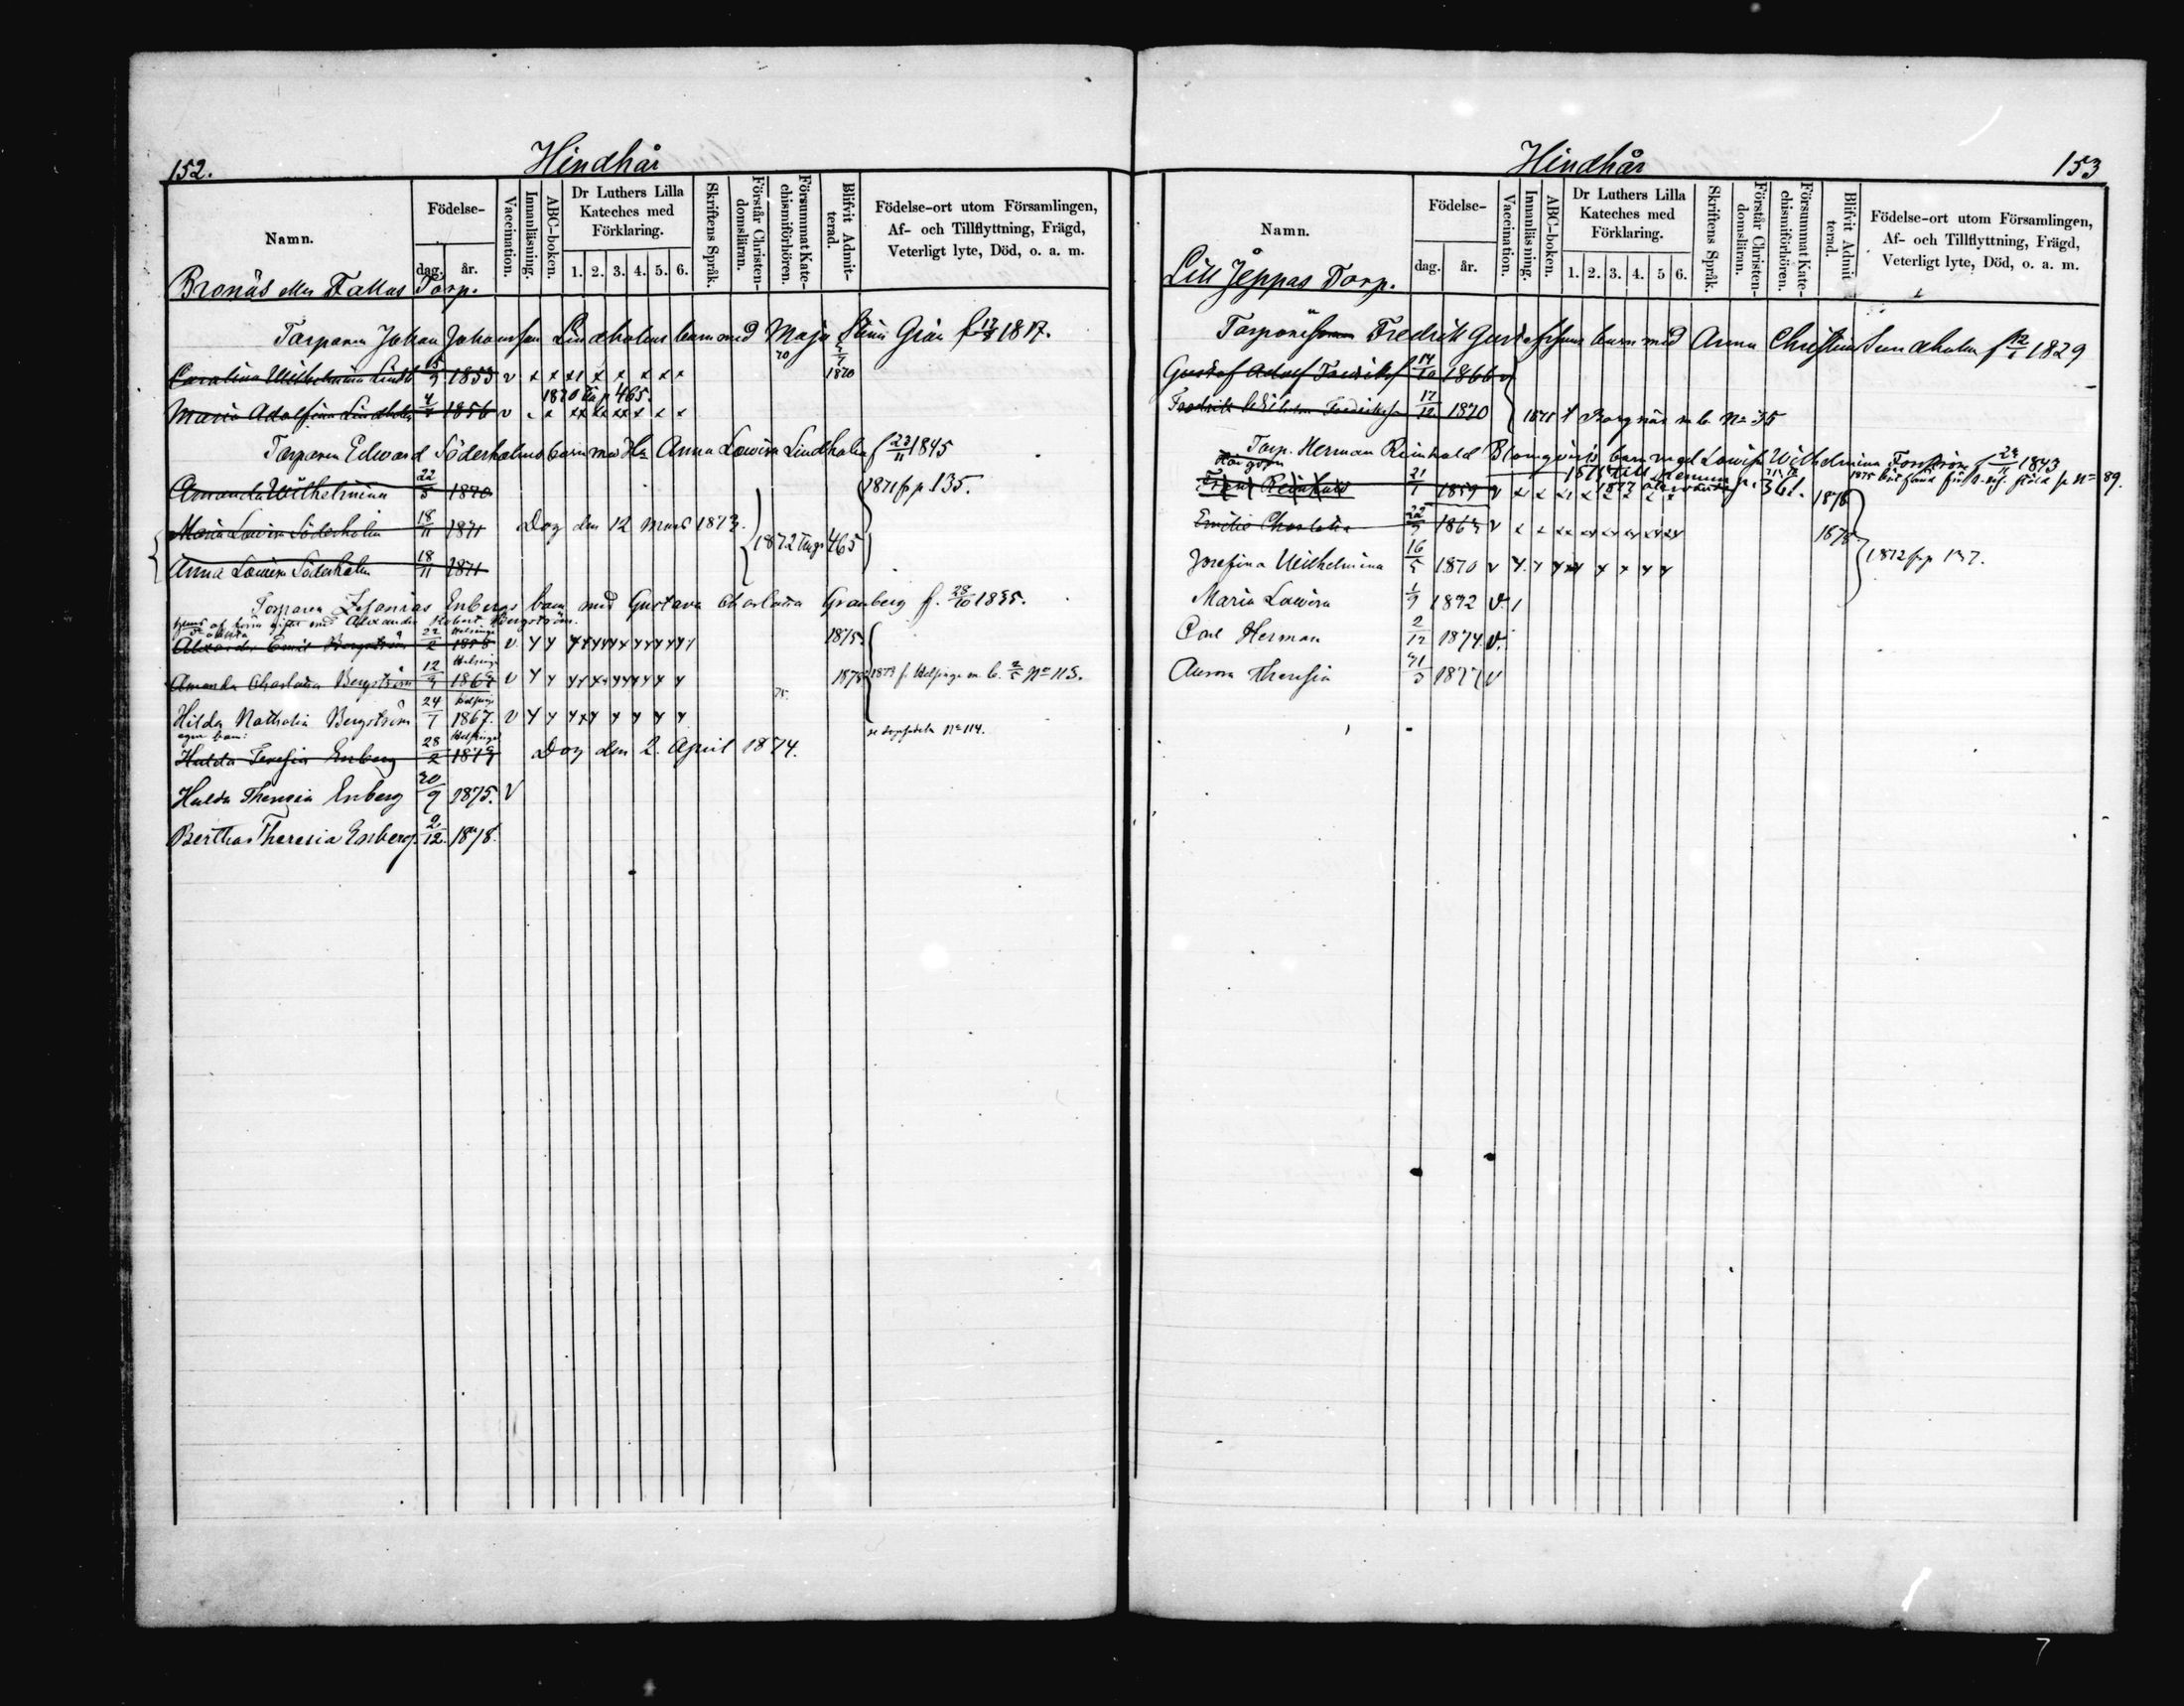 152.
Hindhår
Namn.
Födelse-
dag.
år.
Vaccination.
Innanläsning.
ABC-boken.
Dr Luthers Lilla
Kateches med
Förklaring.
1. 2. 3. 4. 5. 6.
Skriftens Språk.
Förstår Christen-
domsläran.
Försummat Kate-
chismiförhören.
Blifvit Admit-
terad.
Födelse-ort utom Församlingen,
Af- och Tillflyttning, Frägd,
Veterligt lyte, Död, o. a. m.
Bronäs eller Fallas Torp.
Torparen Johan Johansson Lindholms barn med Maja Stina f 1817.
Carolina Wilhelmina Lindh 15/9 1853 v x x x x x x x x 70 1870
1870 till p 465.
Maria Adolfina Lindholm 1856 v
Torparen Edward Söderholms barn med Hu Anna Lowisa Lindholm f 23/11 1845
Amanda Wilhelmina 22/5 1870 1871 fr p. 135.
Maria Lowisa Söderholm 18/11 1871 Dog den 12 Mars 1873.
1872 till p 465
Anna Lowisa Söderholm 18/11 1871
Torparen Zefanias Enbergs barn med Gustava Charlotta Granberg f. 28/10 1835.
hennes af förra giftet med Alexander Robert Bergström.
Alexander Emil Bergström 22/2 1858 Helsinge v 1875.
Amanda Charlotta Bergström 12/9 1862 Helsinge v 1878 1873 fr Helsinge m. b. 2/5 No 113.
75.
Hilda Nathalia Bergström 24/1 1867. Helsinge v
egna barn:
se No 114.
Hulda Teresia Enberg 28/2 1873 Helsinge Dog den 2. April 1874.
Hulda Theresia Enberg 30/9 1875. v
Bertha Theresia Enberg. 2/12. 1878.
Hindhår
153
Namn.
Födelse-
dag.
år.
Vaccination.
Innanläsning.
ABC-boken.
Dr Luthers Lilla
Kateches med
Förklaring.
1. 2. 3. 4. 5 6.
Skriftens Språk.
Förstår Christen-
domsläran.
Försummat Kate-
chismiförhören.
Blifvit Admit
terad.
Födelse-ort utom Församlingen,
Af- och Tillflyttning, Frägd,
Veterligt lyte, Död, o. a. m.
Lill Jeppas Torp.
Fredrik Gustafssons barn med Anna Christina Sundholm f 1829
Gustaf Adolf Fredriksf 14/10 1866 v
Fredrik Wilhelm Fredriksson 17/12 1870 t Borgnäs m. b. No 35
Torp. Herman Reinhold Blomqvists barn med Lowisa Wilhelmina Forsström f 24/11 1843
Frans Reinhold 21/1 1859 v p. 361. 1876 p No 89.
Emilia Charlotta 22/9 1863 v 1878
Josefina Wilhelmina 16/5 1870 v 1872 fr p 137.
Maria Lowisa 1/9 1872 v.
Carl Herman 2/12 1874. v.
Aurora Theresia 31/3 1877 v
7